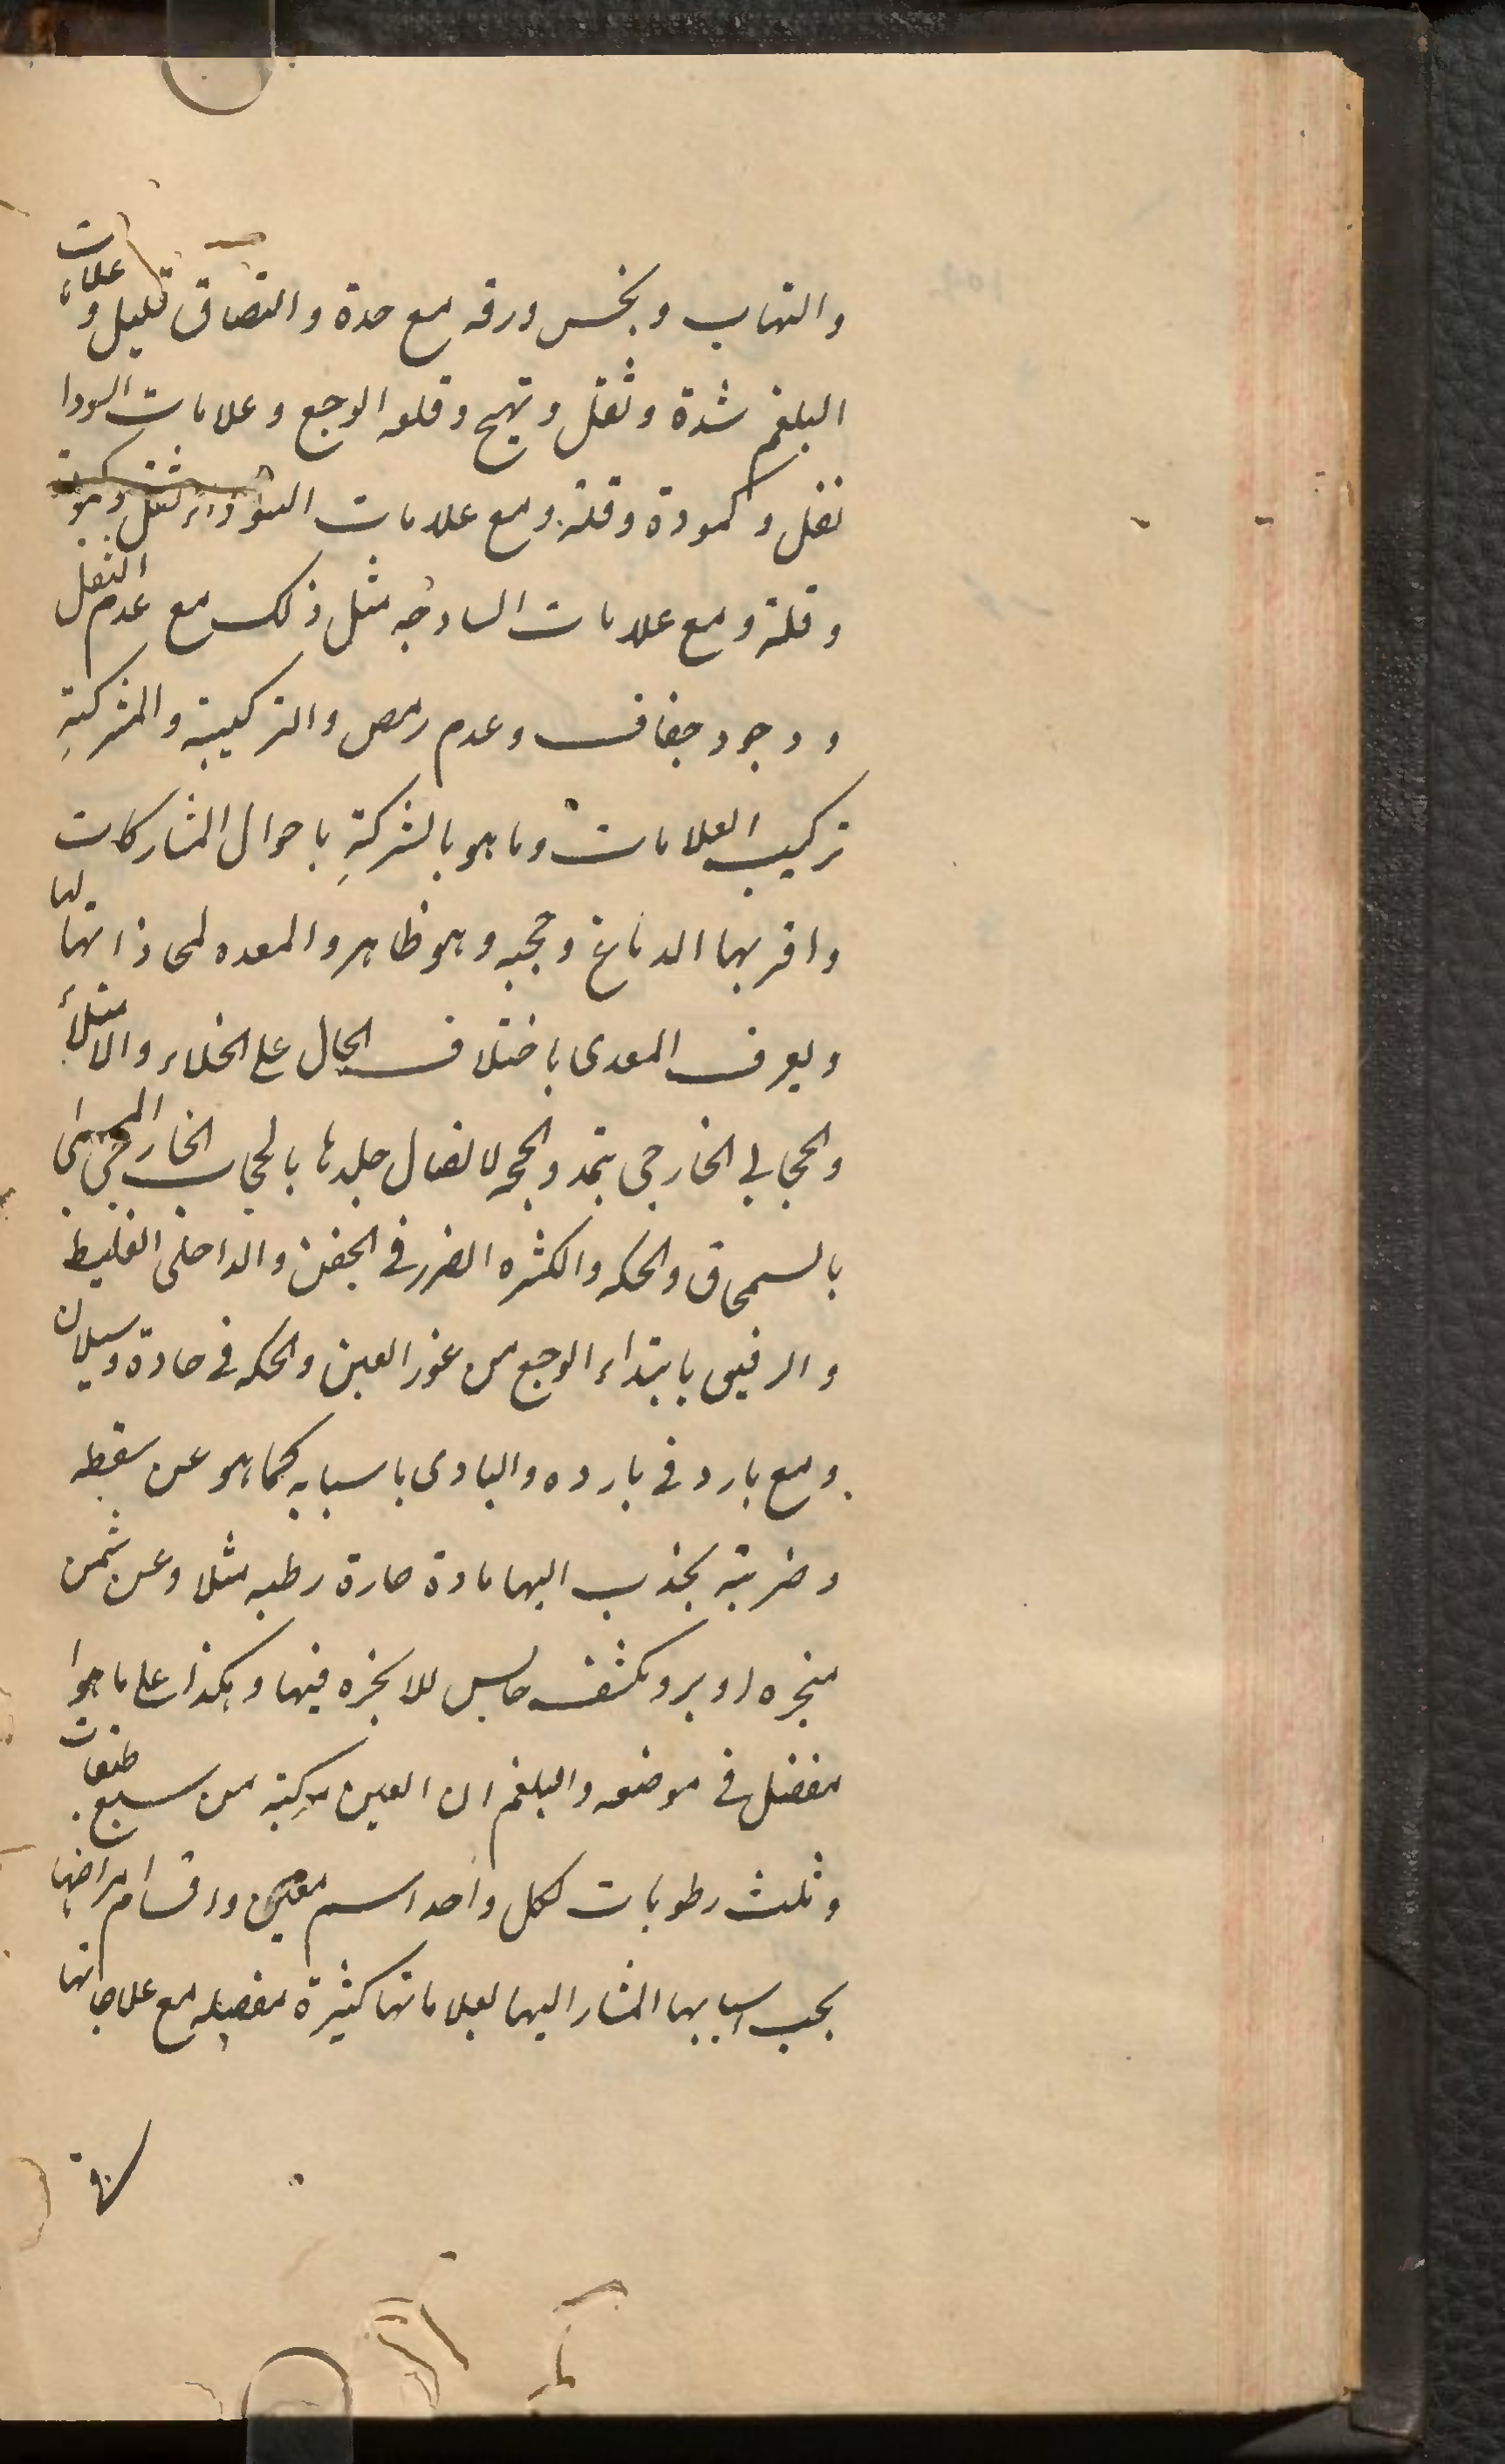 والتهاب ونخس ورقه مع حدة والتصاق قليل وعلامات
البلغم شدة وثقل وتهيج وقله الوجع وعلامات السودا
ثقل وكمودة وقلة ومع علامات
وقلة ومع علامات السادجه مثل ذلك مع عدم الثقل
ووجود جفاف وعدم رمص والتركيبة والمشركة
تركيب العلامات وما هو بالشركة باحوال المشاركات
واقربها الدماغ وحجبه وهو ظاهر والمعده لمحاذاتها لها
ويعرف المعدى باختلاف الحال على الخلاء والامتلاء
والحجابي الخارجي بتمدد الجبهه لاتصال جلدها بالحجاب الخارجي المسمى
بالسمحاق والحكه والكثره الضرر في الجفن والداخلى الغليظ
والرقيق بابتداء الوجع من غور العين والحكه في حادة وسيلان
ومع بارد في بارده والبادى باسبابه كما هو عن سقطه
وضربة بجذب اليها مادة حارة رطبه مثلا وعن شمس
مبخره او برد مكثف حابس للابخره فيها وهكذا على ما هو
مفصل في موضعه والبلغم ان العين مركبة من سبع طبقات
وثلث رطوبات لكل واحد اسم معين واقسام امراضها
بحسب اسبابها المشار اليها بعلاماتها كثيرة مفصله مع علاجاتها